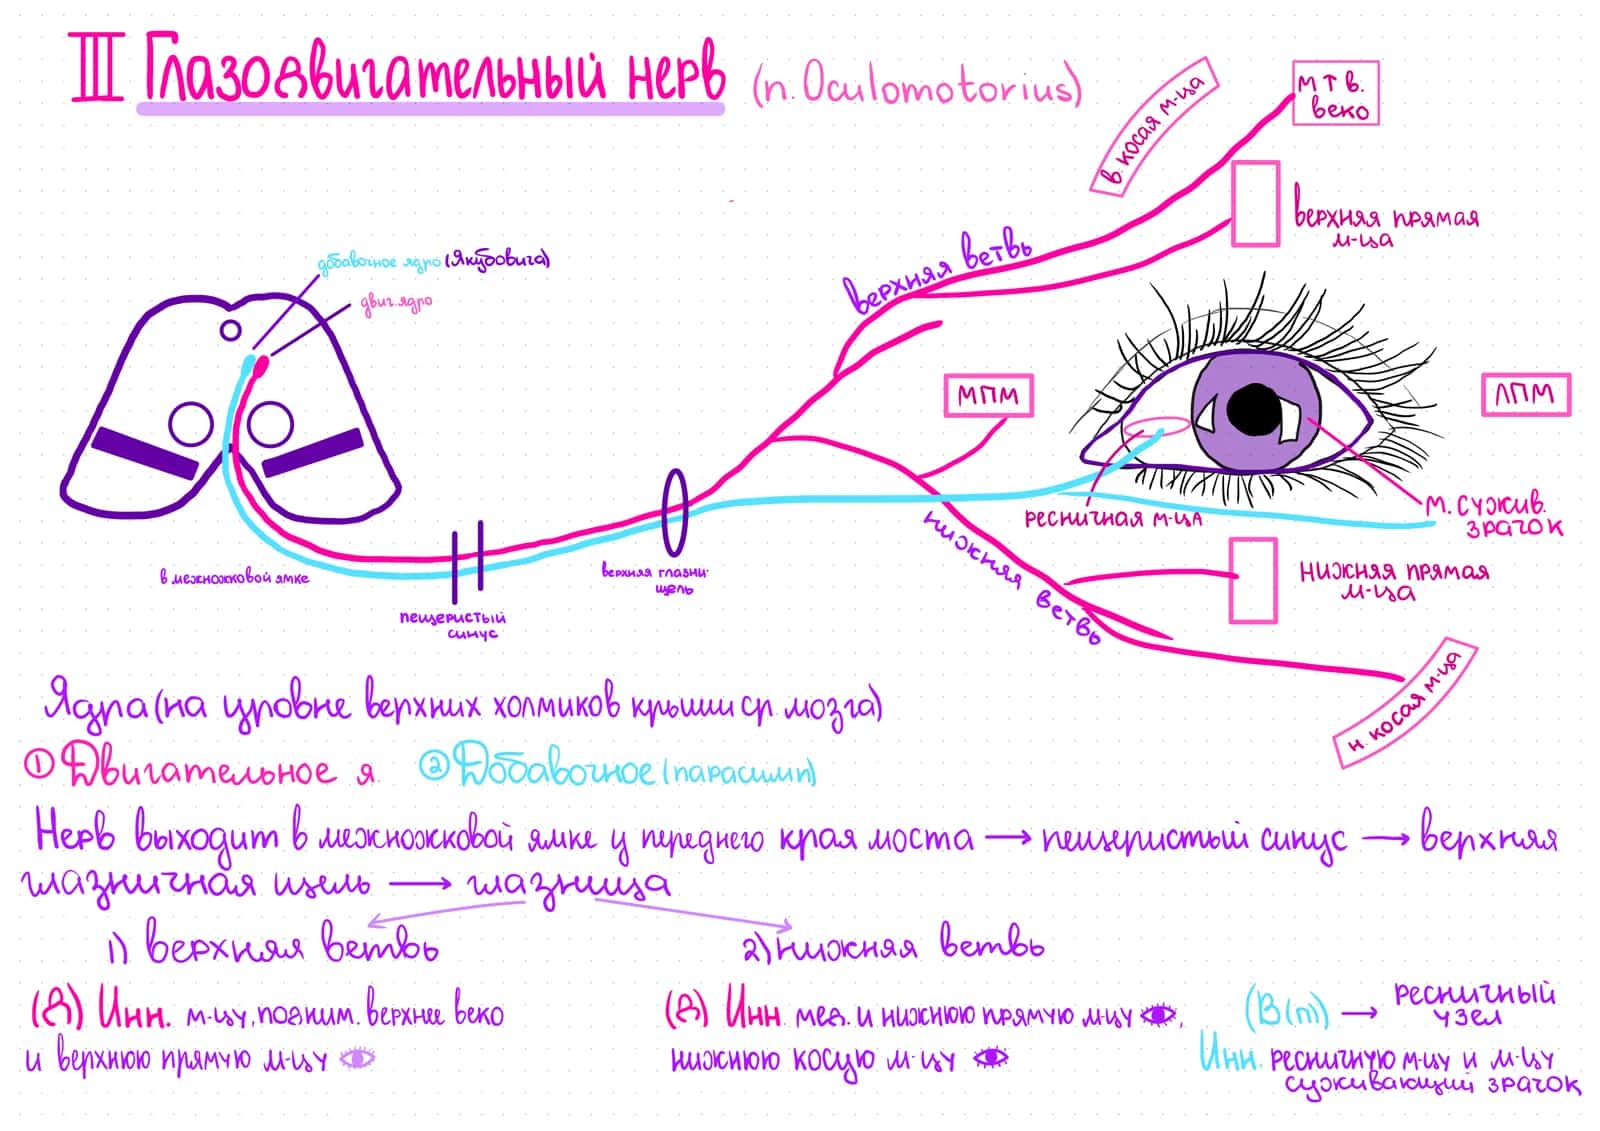 III Глазодвигательный нерв (n. Oculomotorius)
в. косая м-ца
м т в.
веко
верхняя прямая
м-ца
верхняя ветвь
добавочное ядро (Якубовича)
двиг. ядро
МПМ
ЛПМ
ресничная м-ца
м. сужив.
зрачок
нижняя ветвь
в межножковой ямке
пещеристый
синус
верхняя глазни.
щель
нижняя прямая
м-ца
н. косая м-ца
Ядра (на уровне верхних холмиков крыши ср. мозга)
① Двигательное я. ② Добавочное (парасимп)
Нерв выходит в межножковой ямке у переднего края моста → пещеристый синус → верхняя
глазничная щель → глазница
1) верхняя ветвь
2) нижняя ветвь
(Д) Инн. м-цу, подним. верхнее веко
и верхнюю прямую м-цу
(Д) Инн. мед. и нижнюю прямую м-цу ,
нижнюю косую м-цу
(В(п)) → ресничный
узел
Инн. ресничную м-цу и м-цу
суживающий зрачок